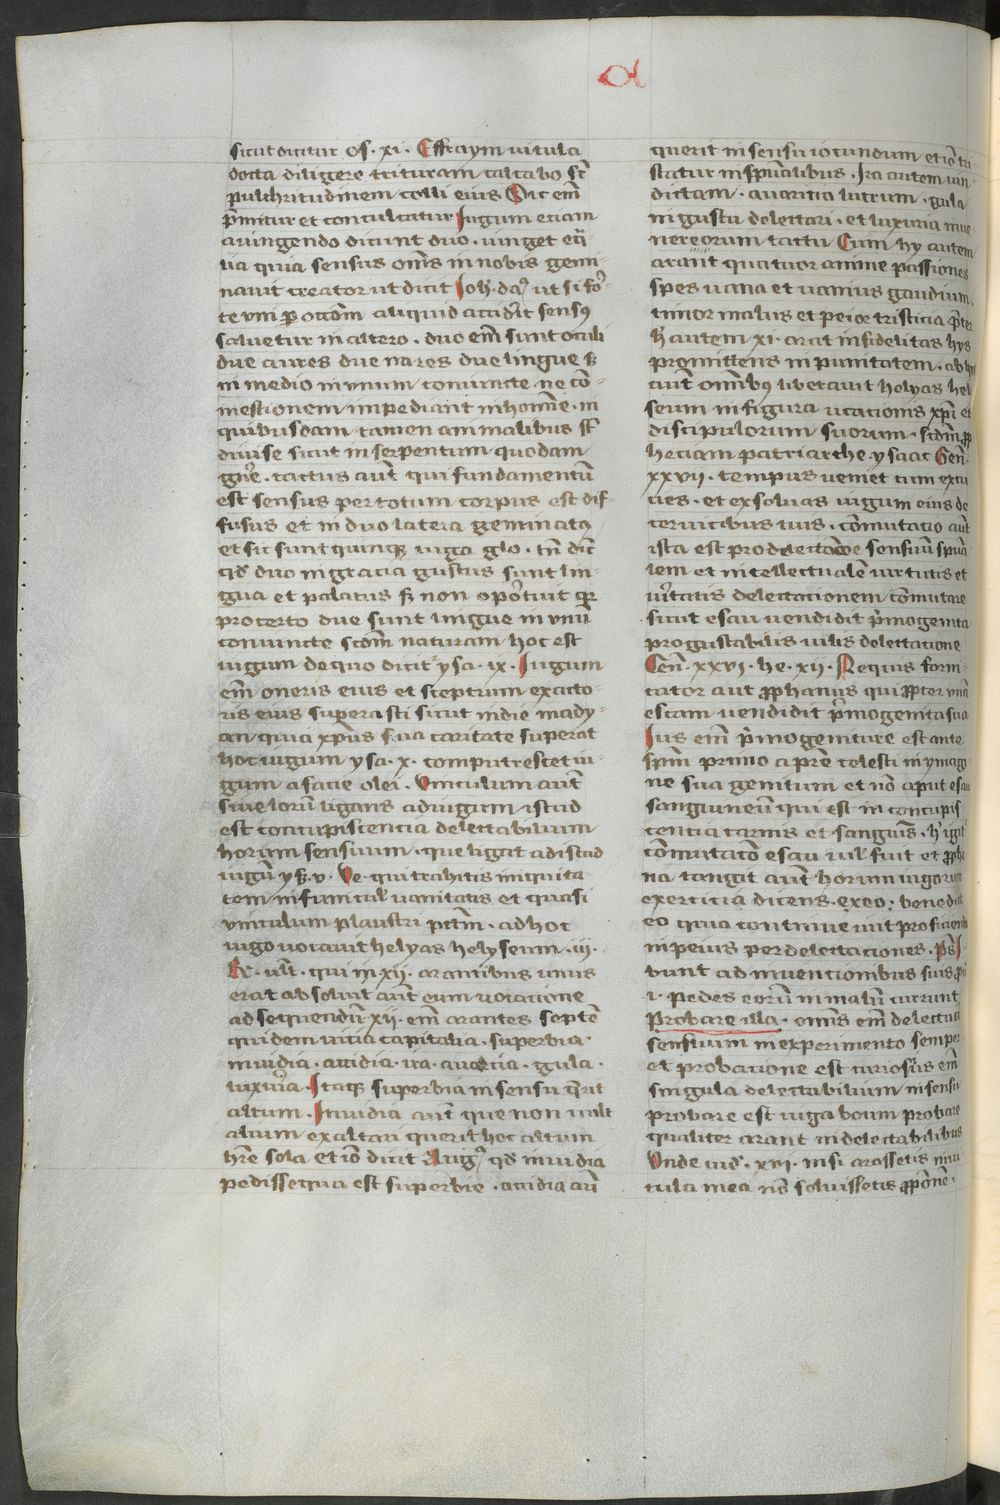 a
sicut dicitur os. xi. Effraym uitula
docta diligere trituram calcabo sr̄
pulchritudinem colli eius Dic em̄
p̄mitur et conculcatur Iugum eciam
a uingendo dicunt duo. uinget
lia quia sensus om̄s in nobis gemi
nauit creator ut dicit Ioh. da. ut si for
te vni p occōm aliquid accidit sensꝯ
saluetur in altero. duo em̄ sunt oculi
due aures due nares due lingue sꝫ
in medio in vnum coniuncte ne cō
mestionem impediant in homīe. in
quibusdam tamen animalibus sūt
diuise sicut in serpentum quodam
gn̄e. tactus aut̄ qui fundamentū
est sensus per totum corpus est dif
fusus et in duo latera geminatꝯ
et sic sunt quinqꝫ iuga glo. tn̄ dic̄
qd̄ duo iugacia gustus sunt lin
gua et palatus sꝫ non oportuit qr
pro certo due sunt lingue in vnū
coniuncte scd̄m naturam hoc est
iugum de quo dicit ysa. ix. Iugum
em̄ oneris eius et sceptrum exacto
ris eius superasti sicut in die mady
an quia xp̄us sua caritate superat
hoc iugum ysa. x. computrescet iu
gum a facie olei. vinculum aut̄
siue lorū ligans ad iugum istud
est concupiscencia delectabilium
horum sensuum. que ligat ad istud
iugū ysa. v. Ve. qui trahitis iniquita
tem in funicul' uanitatis et quasi
vinculum plaustri pctm̄. ad hoc
iugo uocauit helyas helyseum. iii.
Re. ult. qui in xii. arantibus vnus
erat absoluit aut̄ eum uocacione
ad sequendū xii. em̄ arantes septē
quidem uicia capitalia. superbia.
inuidia. accidia. ira. auaricia. gula.
luxuria. Itaqꝫ superbia in sensu q̄rit
altum. Inuidia aut̄ que non uult
alium exaltari querit hoc altum
hr̄e sola et iō dicit Aug. qd̄ inuidia
pedissequa est superbie. accidia aut̄
querit in sensu iocundum et iō tri
statur in spūalibus. Ira autem uin
dictam. auaricia lucrum. gula
in gustu delectari. et luxuria mue
nereorum tactu Cum hys autem
arant quatuor anime passiones
spes uana et uanius gaudium.
timor malus et peior tristicia p̄ter
hec autem xi. arat infidelitas hys
promittens inpunitatem. ab hys
aut̄ omībꝯ liberauit helyas hely
seum in figura uocacionis xp̄i et
discipulorum suorum. scdm̄ ꝓp
heciam patriarche ysaac Gen̄.
xxvii. tempus ueniet cum excu
cies. et exsoluas iugum eius de
ceruicibus tuis. cōmutacio aut̄
ista est pro delectacōe sensuū spūa
lem et intellectualē uirtutis et
ueritatis delectationem cōmutare
sicut esau vendidit p̄mogenita
pro gustabilis uilis delectatione
Gen̄. xxvi. he. xii. Nequis forni
cator aut ꝓphanus qui ꝓpter vnā
escam uendidit p̄mogenita sua
Ius em̄ p̄mogeniture est ante
sp̄m primo a pr̄e celesti in ymagi
ne sua genitum et nō aput esau
sanguineū qui est in concupis
cencia carnis et sanguīs. h' igit'
cōmutacō esau uil' fuit et ꝓpha
na tangit aut̄ horum iugorum
exercicia dicens. exeo: benedict
eo quia continue uir proficiendo
in peius per delectaciones. ps̄ I
bunt ad inuencionibus suis
i. pedes eorū in malū currunt
Probare illa. omīs em̄ delectatio
sensuum in experimento semper
et probatione est curiosus em̄
singula delectabilium in sensu
probare est iuga boum probare
qualiter arant in delectabilibus
Vnde iud. xvi. nisi arassetis uitu
tula mea nō soluissetis ꝓpōnē.